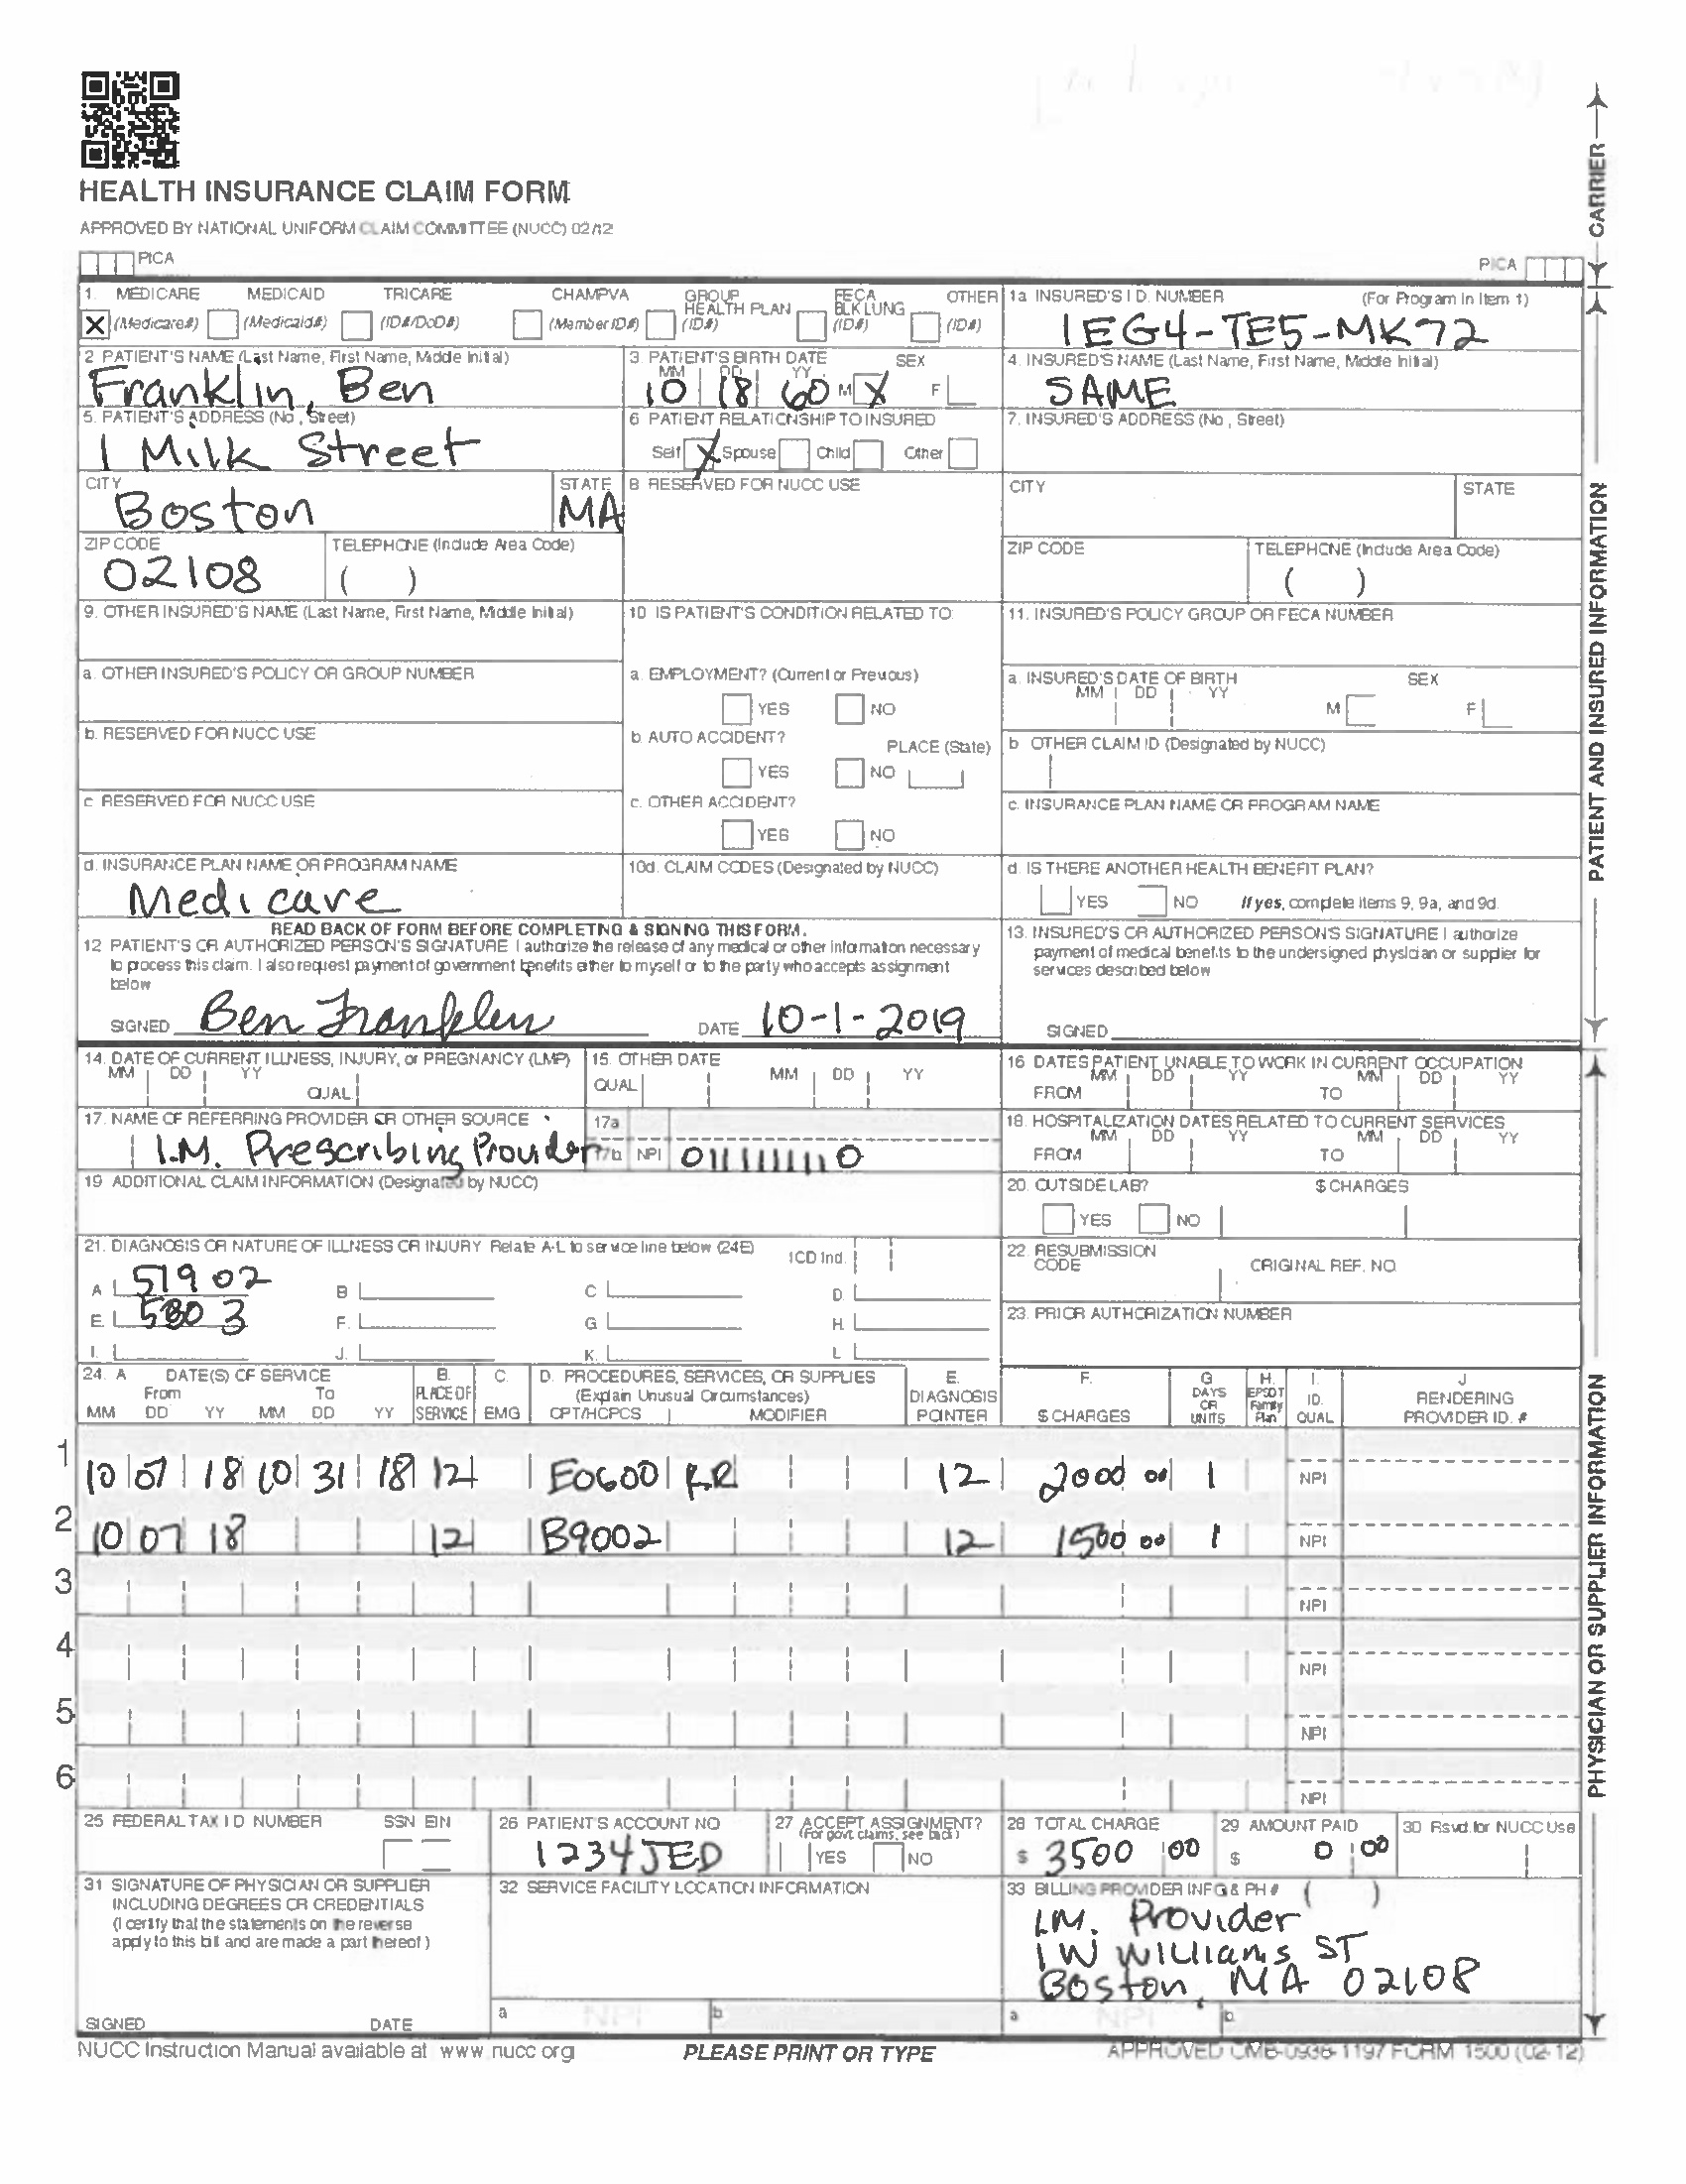 HEALTH INSURANCE CLAIM FORM
APPROVED BY NATIONAL UNIFORM CLAIM COMMITTEE (NUCC) 02/12
PICA PICA
CARRIER
1. MEDICARE MEDICAID TRICARE CHAMPVA GROUP HEALTH PLAN FECA BLK LUNG OTHER
X (Medicare#) (Medicaid#) (ID#/DoD#) (Member ID#) (ID#) (ID#) (ID#)
1a INSURED'S I D. NUMBER (For Program In Item 1)
1EG4-TE5-MK72
2 PATIENT'S NAME (Last Name, First Name, Middle Initial)
Franklin, Ben
3 PATIENT'S BIRTH DATE SEX
MM DD YY
10 18 60 M X F
4. INSURED'S NAME (Last Name, First Name, Middle Initial)
SAME
5. PATIENT'S ADDRESS (No , Street)
1 Milk Street
6 PATIENT RELATIONSHIP TO INSURED
Self X Spouse Child Other
7. INSURED'S ADDRESS (No , Street)
CITY STATE
Boston MA
8 RESERVED FOR NUCC USE
CITY STATE
ZIP CODE TELEPHONE (Include Area Code)
02108 ( )
ZIP CODE TELEPHONE (Include Area Code)
( )
9. OTHER INSURED'S NAME (Last Name, First Name, Middle Initial)
10 IS PATIENT'S CONDITION RELATED TO
11. INSURED'S POLICY GROUP OR FECA NUMBER
a. OTHER INSURED'S POLICY OR GROUP NUMBER
a. EMPLOYMENT? (Current or Previous)
YES NO
a. INSURED'S DATE OF BIRTH SEX
MM DD YY M F
b. RESERVED FOR NUCC USE
b AUTO ACCIDENT? PLACE (State)
YES NO
b OTHER CLAIM ID (Designated by NUCC)
c RESERVED FOR NUCC USE
c. OTHER ACCIDENT?
YES NO
c. INSURANCE PLAN NAME OR PROGRAM NAME
d. INSURANCE PLAN NAME OR PROGRAM NAME
Medicare
10d. CLAIM CODES (Designated by NUCC)
d IS THERE ANOTHER HEALTH BENEFIT PLAN?
YES NO If yes, complete items 9, 9a, and 9d
READ BACK OF FORM BEFORE COMPLETING & SIGNING THIS FORM.
12 PATIENT'S OR AUTHORIZED PERSON'S SIGNATURE I authorize the release of any medical or other information necessary
to process this claim. I also request payment of government benefits either to myself or to the party who accepts assignment
below
SIGNED Ben Franklin DATE 10-1-2019
13. INSURED'S OR AUTHORIZED PERSON'S SIGNATURE I authorize
payment of medical benefits to the undersigned physician or supplier for
services described below
SIGNED
PATIENT AND INSURED INFORMATION
14. DATE OF CURRENT ILLNESS, INJURY, or PREGNANCY (LMP)
MM DD YY QUAL
15. OTHER DATE
QUAL MM DD YY
16 DATES PATIENT UNABLE TO WORK IN CURRENT OCCUPATION
MM DD YY MM DD YY
FROM TO
17. NAME OF REFERRING PROVIDER OR OTHER SOURCE
I.M. Prescribing Provider
17a
17b NPI 0111111110
18. HOSPITALIZATION DATES RELATED TO CURRENT SERVICES
MM DD YY MM DD YY
FROM TO
19 ADDITIONAL CLAIM INFORMATION (Designated by NUCC)
20. OUTSIDE LAB? $ CHARGES
YES NO
21. DIAGNOSIS OR NATURE OF ILLNESS OR INJURY Relate A-L to service line below (24E) ICD Ind.
A 519 02 B C D.
E. 530 3 F. G H.
I. J. K. L
22. RESUBMISSION CODE ORIGINAL REF. NO.
23. PRIOR AUTHORIZATION NUMBER
24. A DATE(S) OF SERVICE B. C. D. PROCEDURES, SERVICES, OR SUPPLIES E. F. G H. I. J
From To PLACE OF (Explain Unusual Circumstances) DIAGNOSIS DAYS OR UNITS EPSDT Family Plan ID. QUAL RENDERING
MM DD YY MM DD YY SERVICE EMG CPT/HCPCS MODIFIER POINTER $ CHARGES PROVIDER ID. #
1 10 07 18 10 31 18 12 E0600 RR 12 2000 00 1 NPI
2 10 07 18 12 B9002 12 1500 00 1 NPI
3 NPI
4 NPI
5 NPI
6 NPI
25 FEDERAL TAX I D NUMBER SSN EIN
26 PATIENT'S ACCOUNT NO
1234JED
27 ACCEPT ASSIGNMENT?
(For govt claims, see back)
YES NO
28 TOTAL CHARGE
$ 3500 00
29 AMOUNT PAID
$ 0 00
30 Rsvd for NUCC Use
31 SIGNATURE OF PHYSICIAN OR SUPPLIER
INCLUDING DEGREES OR CREDENTIALS
(I certify that the statements on the reverse
apply to this bill and are made a part thereof )
SIGNED DATE
32 SERVICE FACILITY LOCATION INFORMATION
a NPI b
33 BILLING PROVIDER INFO & PH # ( )
I.M. Provider
1 W Williams ST
Boston, MA 02108
a NPI b
PHYSICIAN OR SUPPLIER INFORMATION
NUCC Instruction Manual available at www nucc org
PLEASE PRINT OR TYPE
APPROVED OMB-0938-1197 FORM 1500 (02-12)